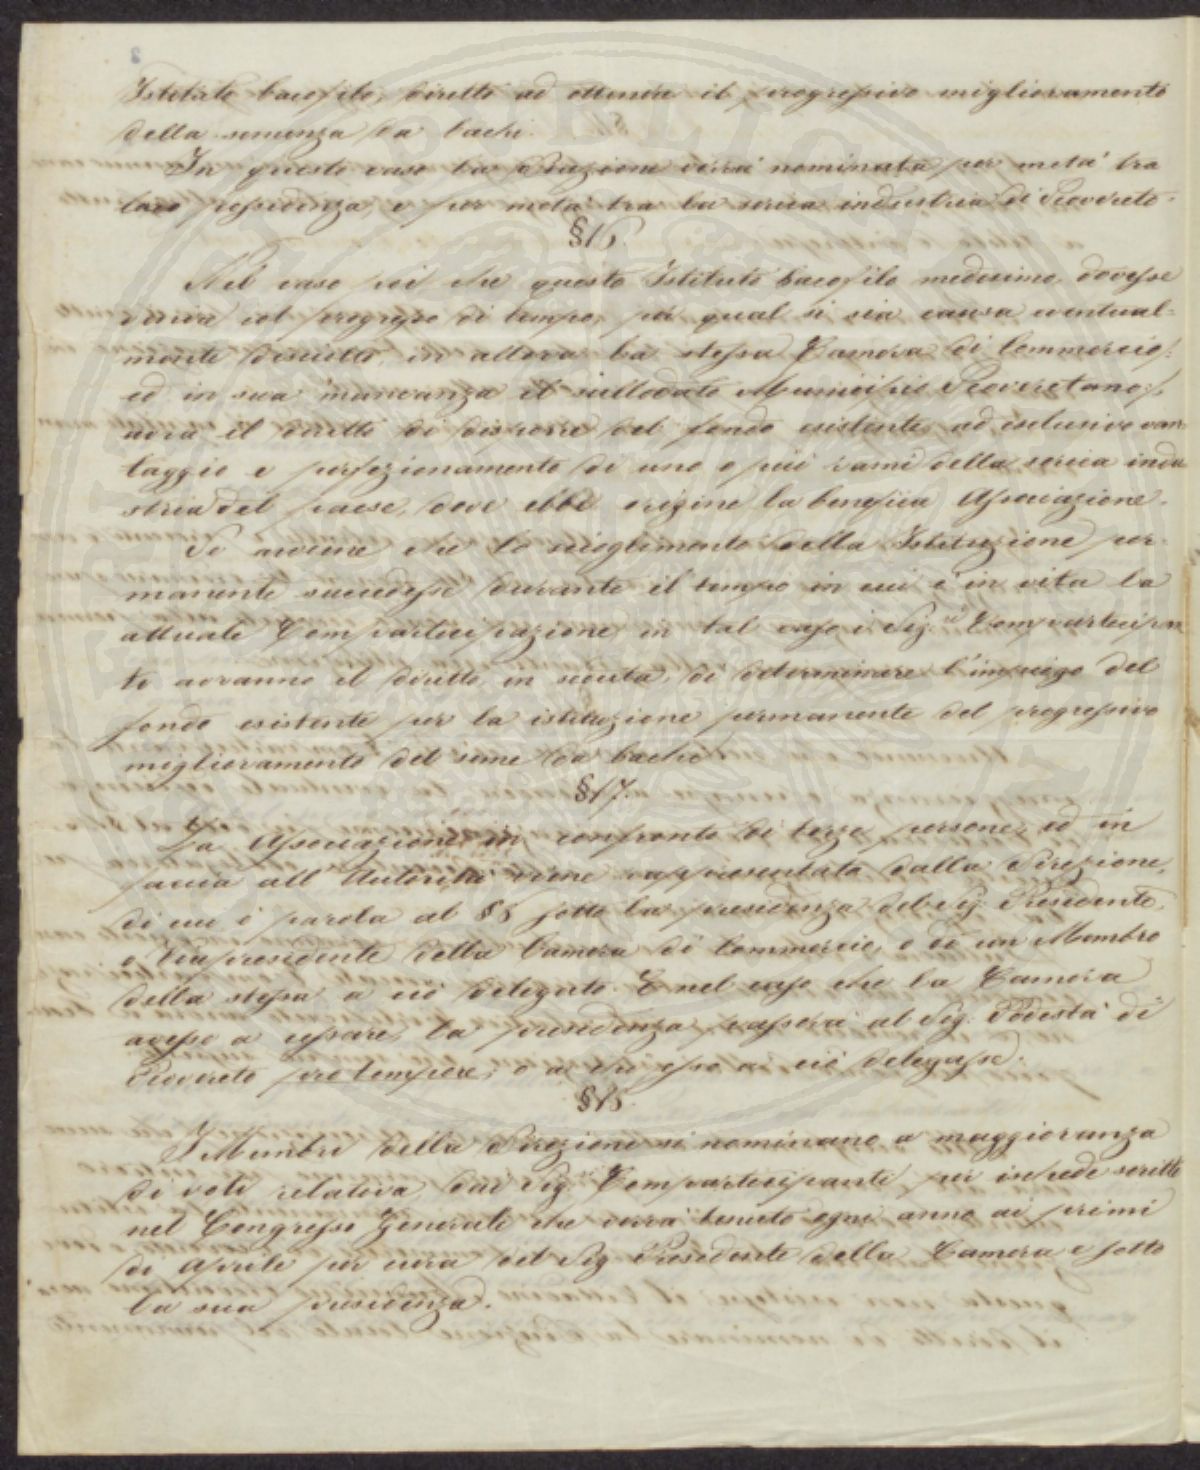 Istituto bacofilo, diretto ad ottenere il progressivo miglioramento
della semenza da bachi.
In questo caso la Direzione verrà nominata per metà tra
la possidenza, e per metà tra la serica industria di Rovereto.
§16.
Nel caso poi che questo Istituto bacofilo medesimo dovesse
venire col progresso di tempo, per qual si sia causa eventual=
mente disciolto, in allora la stessa Camera di Commercio,
ed in sua mancanza il sullodato Municipio Roveretano,
avrà il diritto di disporre del fondo esistente, ad esclusivo van
taggio e perfezionamento di uno o più rami della serica indu
stria del paese, dove ebbe origine la benefica Associazione.
Se avviene che lo scioglimento della Istituzione per
manente succedesse durante il tempo in cui è in vita la
attuale Compartecipazione, in tal caso i Sigri Compartecipan
ti avranno il diritto, in seduta, di determinare l'impiego del
fondo esistente per la istituzione permanente del progressivo
miglioramento del seme da bachi.
§17.
La Associazione in confronto di terze persone, ed in
faccia all'Autorità viene rappresentata dalla Direzione,
di cui è parola al §8 sotto la presidenza del Sig. Presidente,
o Vicepresidente della Camera di Commercio, o di un Membro
della stessa a ciò delegato. E nel caso che la Camera
avesse a cessare, la presidenza passerà al Sig. Podestà di
Rovereto pro tempore, o a chi esso a ciò delegasse.
§18.
I Membri della Direzione si nominano a maggioranza
di voti relativa, dai Sigri Compartecipanti per ischede scritte
nel Congresso Generale che verrà tenuto ogni anno ai primi
di Aprile per cura del Sig. Presidente della Camera e sotto
la sua presidenza.